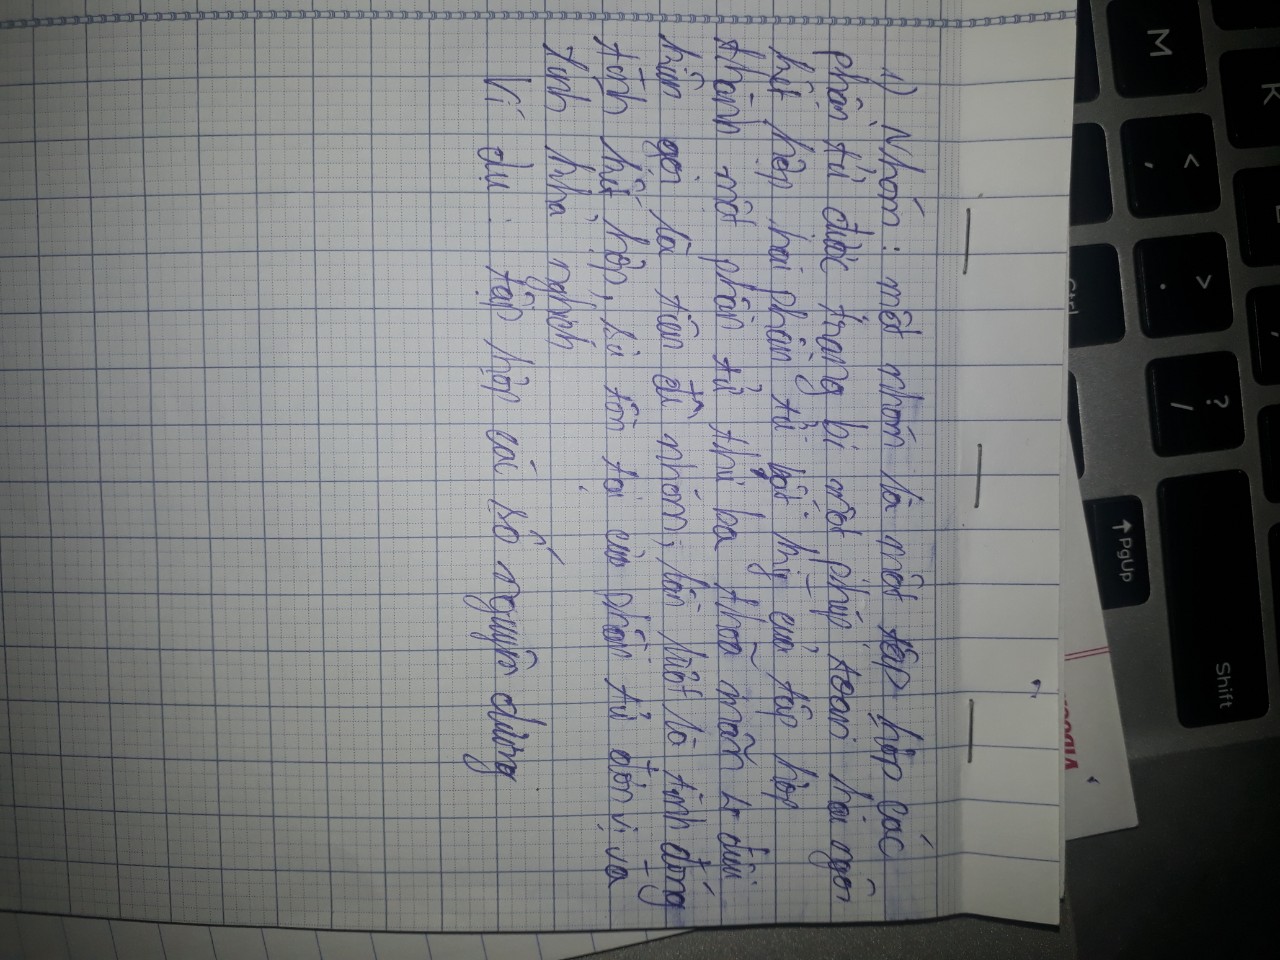 K
M
<
,
>
.
?
/
Shift
↑ PgUp
Ctrl
1) Nhóm: một nhóm là một tập hợp các
phần tử được trang bị một phép toán hai ngôi
kết hợp hai phần tử bất kỳ của tập hợp
thành một phần tử thứ ba thoả mãn 4 điều
kiện gọi là tiên đề nhóm, lần lượt là tính đóng
tính kết hợp, sự tồn tại của phần tử đơn vị và
tính khả nghịch
Ví dụ: tập hợp các số nguyên dương